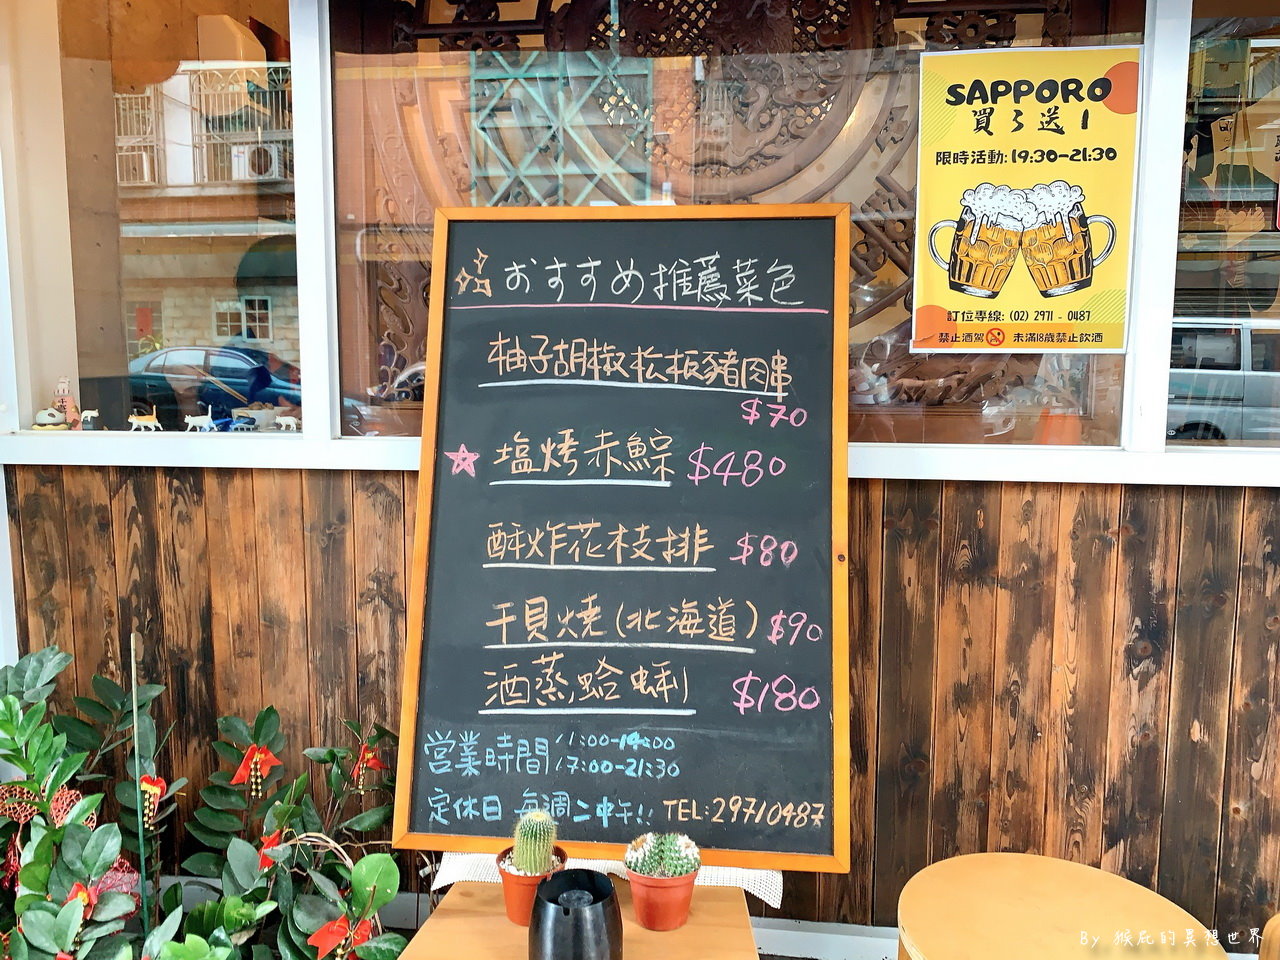 SAPPORO
買3送1
限時活動:19:30-21:30
訂位專線: (02) 2971 - 0487
禁止酒駕 未滿18歲禁止飲酒
おすすめ推薦菜色
柚子胡椒松板豬肉串
$70
塩烤赤鯮 $480
酥炸花枝排 $80
干貝燒(北海道) $90
酒蒸蛤蜊 $180
営業時間 11:00-14:00
17:00-21:30
定休日 每週二中午!! TEL:29710487
By 猴屁的異想世界